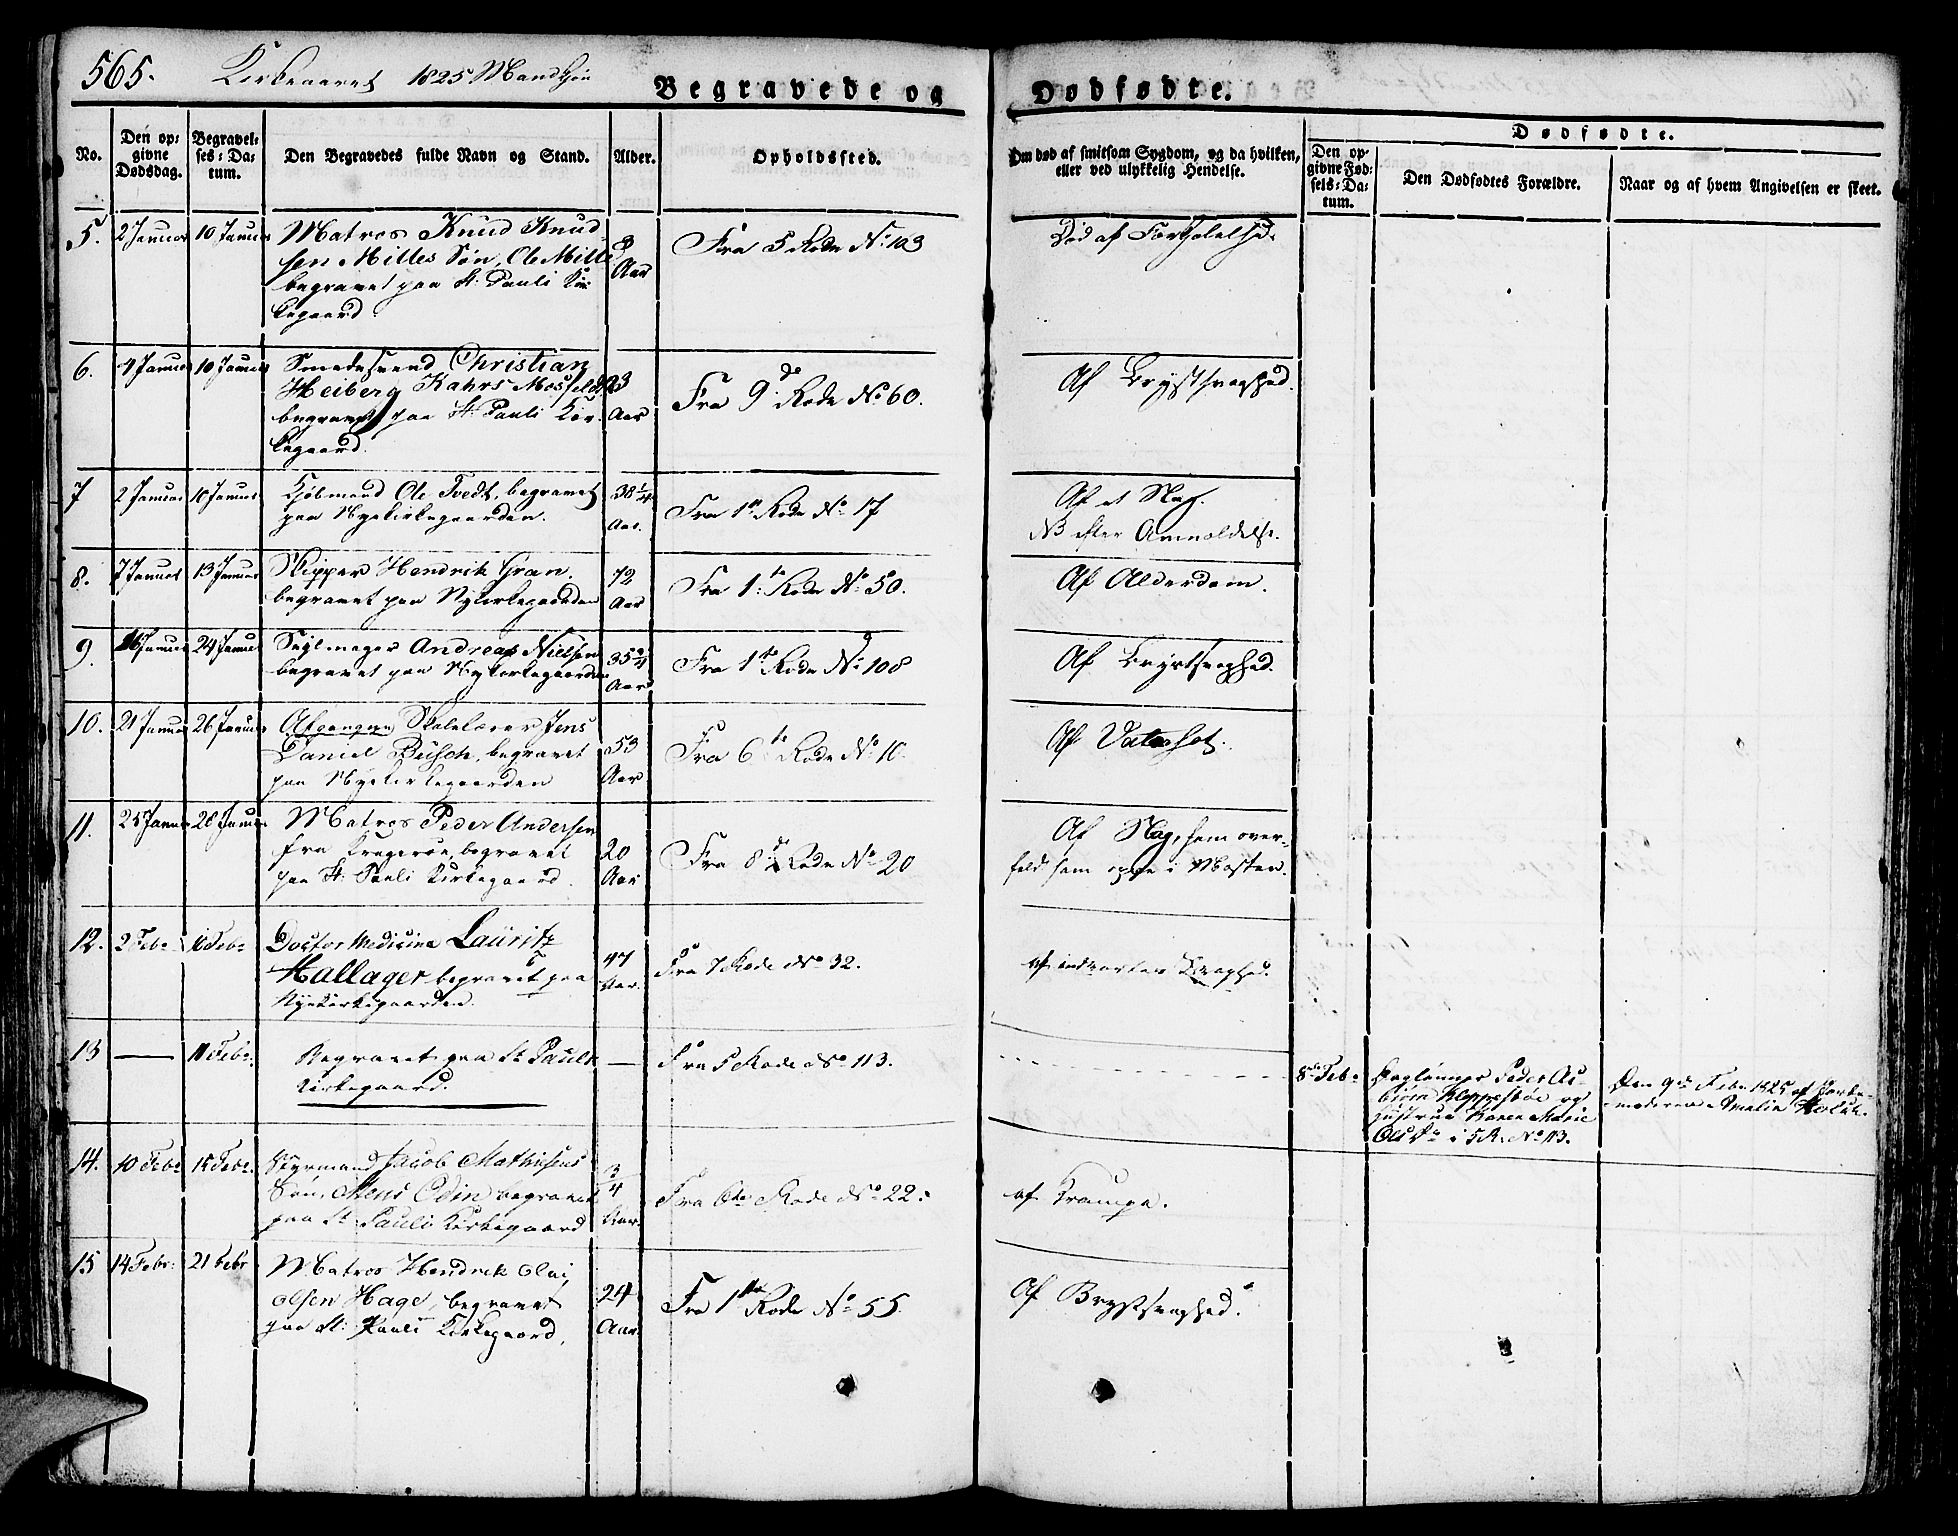 565. Kirkeaaret 1825 Mandkjøn
Begravede og Dødfødte.
No.
Den op-
givne
Dødsdag.
Begravel-
ses-Da-
tum.
Den Begravedes fulde Navn og Stand.
Alder.
Opholdssted.
Om død af smitsom Sygdom, og da hvilken,
eller ved ulykkelig Hendelse.
Dødfødte.
Den op-
givne Fød-
sels-Da-
tum.
Den Dødfødtes Forældre.
Naar og af hvem Angivelsen er skeet.
5. 2 Januar 10 Januar Matros Knud Knud-
sen Milles Søn, Ole Mille
begravet paa St: Pauli Kir-
kegaard
3
Aar
Fra 5 Rode No 103
Død af Forkjølelse.
6. 4 Januar 10 Januar Smedesvend Christian
Heiberg Kahrs
begravet paa St: Pauli Kir-
kegaard.
23
Aar
Fra 9de Rode No 60.
Af Brystsvaghed.
7 2 Januar 10 Januar Kjøbmand Ole Tvedt, begravet
paa Nyekirkegaarden.
38 1/4
Aar.
Fra 1te Rode No 17
Af et Slag.
NB efter Anmeldelse.
8. 7 Januar 13 Januar Skipper Hendrik Gran.
begravet paa Nykirkegaarden
72
Aar
Fra 1te Rode No 50.
Af Alderdom.
9. 16 Januar 24 Januar Seylmager Andreas Nielsen
begravet paa Nykirkegaarden
35 3/4
Aar
Fra 1te Rode No 108
Af Brystsvaghed.
10. 21 Januar 26 Januar Afgangen Skolelærer Jens
Daniel Busch, begravet
paa Nyekirkegaarden
53
Aar
Fra 6te Rode No 10.
Af Vatersot.
11. 25 Januar 28 Januar Matros Peder Andersen
fra Kragerøe, begravet
paa St: Pauli Kirkegaard.
20
Aar
Fra 8de Rode No 20
Af Slag, som over-
faldt ham oppe i Masten.
12. 2 Febr 11 Febr Doctor Medicina Lauritz
Hallager begravet paa
Nyekirkegaarden.
47
Aar.
Fra 7 Rode No 32.
af indvortes Svaghed.
13 — 11 Febr. Begravet paa St Pauli
Kirkegaard.
—
Fra 5 Rode No 113.
8de Febr
Daglønner Peder As-
biørn Kleppestøe og
Hustrue Karen Marie
Olsdr i 5 R. No 113.
Den 9de Febr 1825 af Jorde-
moderen Amalia Holck.
14. 10 Febr 15 Febr. Styrmand Jacob Mathisens
Søn, Mens Odin begravet
paa St Pauli Kirkegaard
3/4
Aar.
Fra 6te Rode No 22.
af Krampe.
15 14 Febr: 21 Febr Matros Hendrik Olai
Olsen Hage, begravet
paa St: Pauli Kirkegaard,
24
Aar
Fra 1te Rode No 55
Af Brystsvaghed.